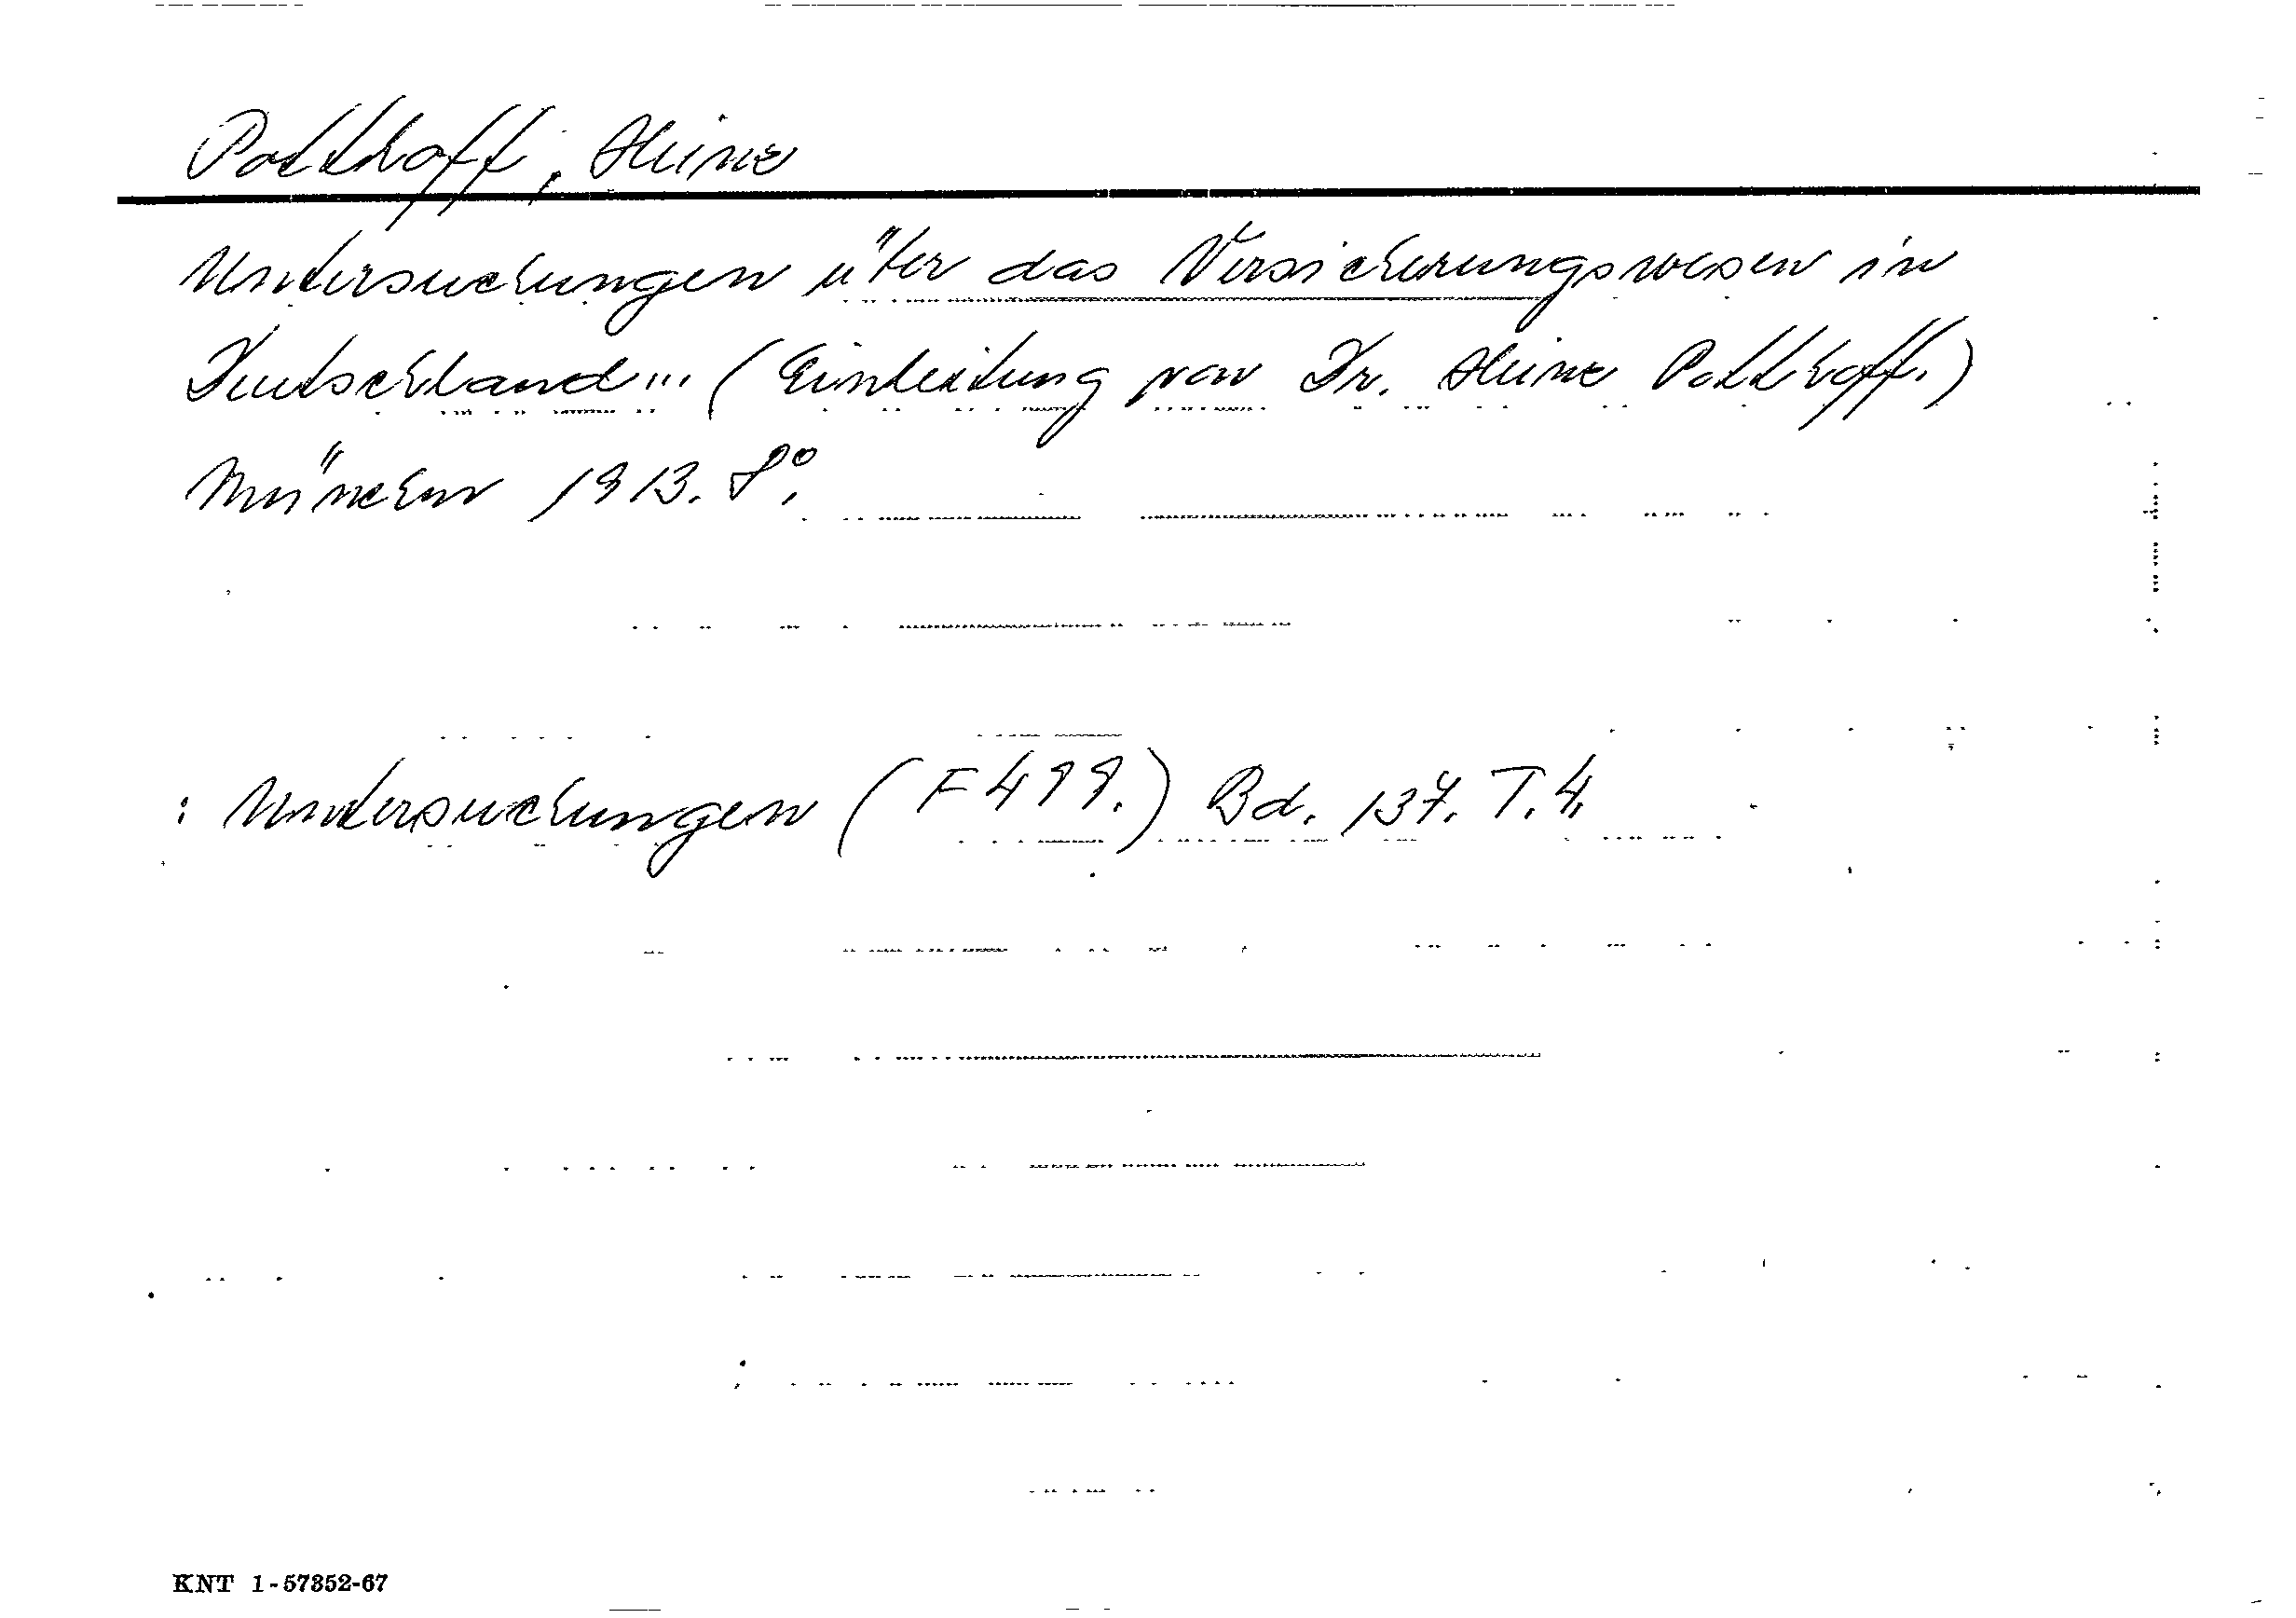 Potthoff, Heinz
Untersuchungen über das Versicherungswesen in
Deutschland... (Einleitung von Dr. Heinz Potthoff.)
München 1913. 8°.
: Untersuchungen (F 499.) Bd. 137. T. 4.
KNT 1-57352-67